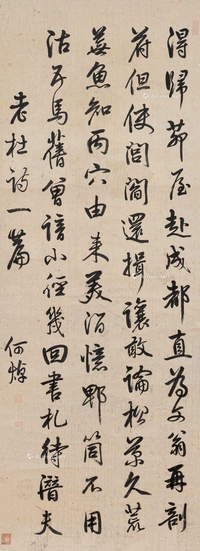 得歸茅屋赴成都直為文翁再剖
符但使閭閻還揖讓敢論松菊久荒
蕪魚知丙穴由來美酒憶郫筒不用
沽五馬舊曾諳小徑幾回書札待潛夫
老杜詩一篇
何焯